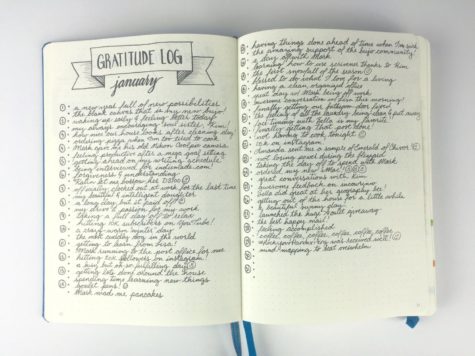 GRATITUDE LOG
january
a new year full of new possibilities
the blank canvas that is my new bujo
waking up and feeling better today
my always encouraging sister, Tina
how our house looks after cleaning day
ordering pizza when I'm too tired to cook
Mark gave me his old Nikon Coolpix camera
feeling productive after a mega goal setting
getting ahead on my writing schedule
being interviewed for
forgiveness & understanding
Kalin let me borrow her D3200
officially clocked out at work for the last time
my beautiful & intelligent daughter
a long day, but it pays off
my drive & passion for my work
taking a full day off to relax
hitting 10K subscribers on YouTube!
a crazy-warm winter day
the most cuddly dog in the world
getting to
Mark running to the post office for me
hitting 20K followers on instagram!
a busy but oh so fulfilling day
getting lots done around the house
spending time learning new things
Mark made me pancakes
having things done ahead of time when I'm sick
the amazing support of the bujo community
a day off with Mark
learning how to use scrivener thanks to Kim
the first snowfall of the season
blessed to do what I love for a living
having a clean, organized office
great day w/ Mark being off work
awesome conversation w/ Kim this morning!
finally getting our ballroom door fixed
the feeling of all the laundry being clean & put away
the timing with Bella is my favorite
finally getting that post done!
not having to cook tonight
10K on instagram
Amanda sent me a sample of Emerald of Chivor
not losing power during the
taking the day off to spend with Mark
ordered my new iMac!
great conversations with Kim
awesome feedback on
Bella did great at her geography bee!
getting out of the house for a little while
a beautiful sunny day!
launched the huge 10K giveaway
the best happy mail!
feeling accomplished
coffee, coffee, coffee, coffee, coffee
was received well!
mind-mapping to beat overwhelm